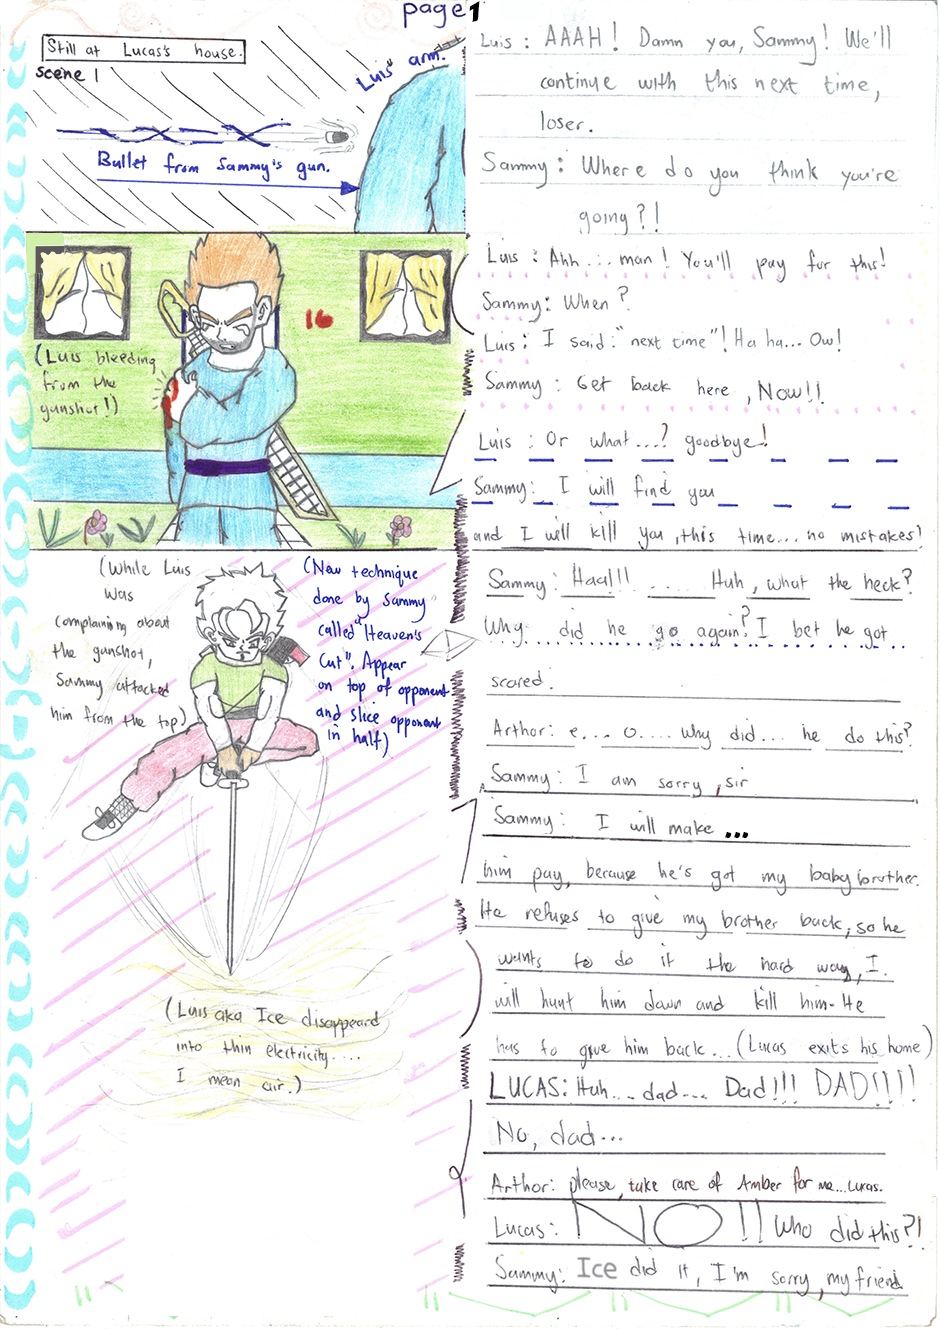 page 1
Still at Lucas's house.
scene 1
Luis' arm.
Bullet from Sammy's gun.
16
(Luis bleeding
from the
gunshot!)
(While Luis
was
complaining about
the gunshot,
Sammy attacked
him from the top)
(New technique
done by Sammy
called "Heaven's
Cut". Appear
on top of opponent
and slice opponent
in half)
(Luis aka Ice disappeard
into thin electricity....
I mean air.)
Luis: AAAH! Damn you, Sammy! We'll
continue with this next time,
loser.
Sammy: Where do you think you're
going?!
Luis: Ahh.... man! You'll pay for this!
Sammy: When?
Luis: I said: "next time"! Ha ha... Ow!
Sammy: Get back here, Now!!
Luis: Or what...? goodbye!
Sammy: I will find you
and I will kill you, this time... no mistakes!
Sammy: Haa!!! ...... Huh, what the heck?
Why did he go again? I bet he got
scared.
Arthor: e.... o..... Why did.... he do this?
Sammy: I am sorry, sir
Sammy: I will make ...
him pay, because he's got my baby brother.
He refuses to give my brother back, so he
wants to do it the hard way, I
will hunt him down and kill him. He
has to give him back... (Lucas exits his home)
LUCAS: Huh... dad.... Dad!!! DAD!!!!
No, dad...
Arthor: please, take care of Amber for me...Lucas.
Lucas: NO!! Who did this?!
Sammy: Ice did it, I'm sorry, my friend